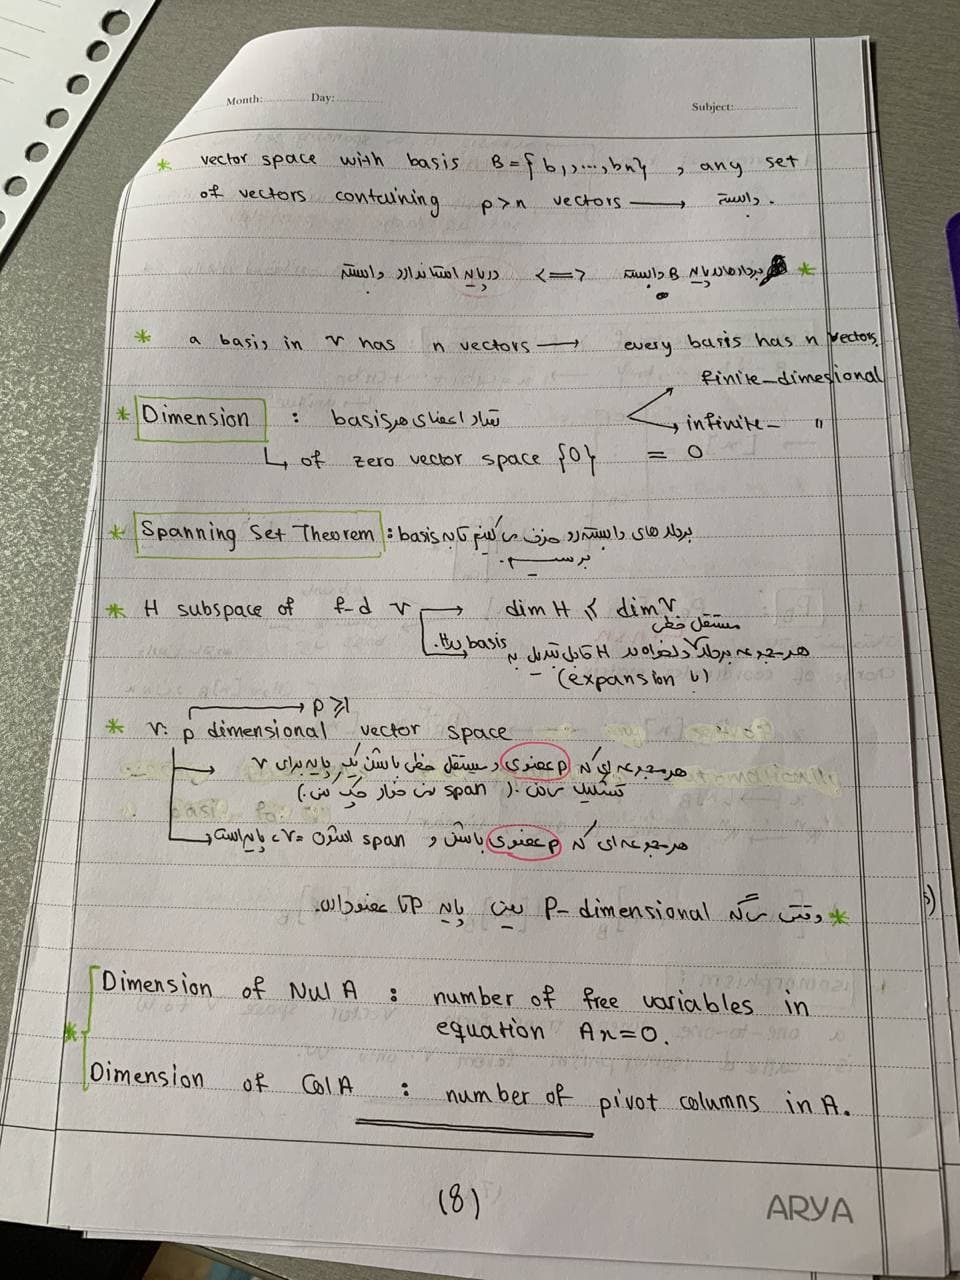 Month: Day: Subject:
* vector space with basis B = {b1, ..., bn} , any set
of vectors containing p > n vectors ⟶ وابسته .
* بردارها در پایه B وابسته <=> در پایه استاندارد وابسته
* a basis in V has n vectors ⟶ every basis has n vectors.
finite-dimesional
* Dimension : تعداد اعضای هر basis
infinite- "
↳ of zero vector space {0} = 0
* Spanning Set Theorem : بردارهای وابسته رو حذف می کنیم تا به basis
برسیم.
* H subspace of f-d V ⟶ dim H ≤ dim V
مستقل خطی
هر مجموعه بردار دلخواه در H قابل تبدیل به basis H.
(با expansion)
p ≥ 1
* V: p dimensional vector space
هر مجموعه ای که p عضوی و مستقل خطی باشن یک پایه برای V
تشکیل می دن. ( span
هر مجموعه ای که p عضوی باشن و span اشون = V ، پایه است
* وقتی میگه P-dimensional یعنی پایه P تا عضو داره.
Dimension of Nul A : number of free variables in
* equation Ax=0.
Dimension of Col A : number of pivot columns in A.
(8)
ARYA